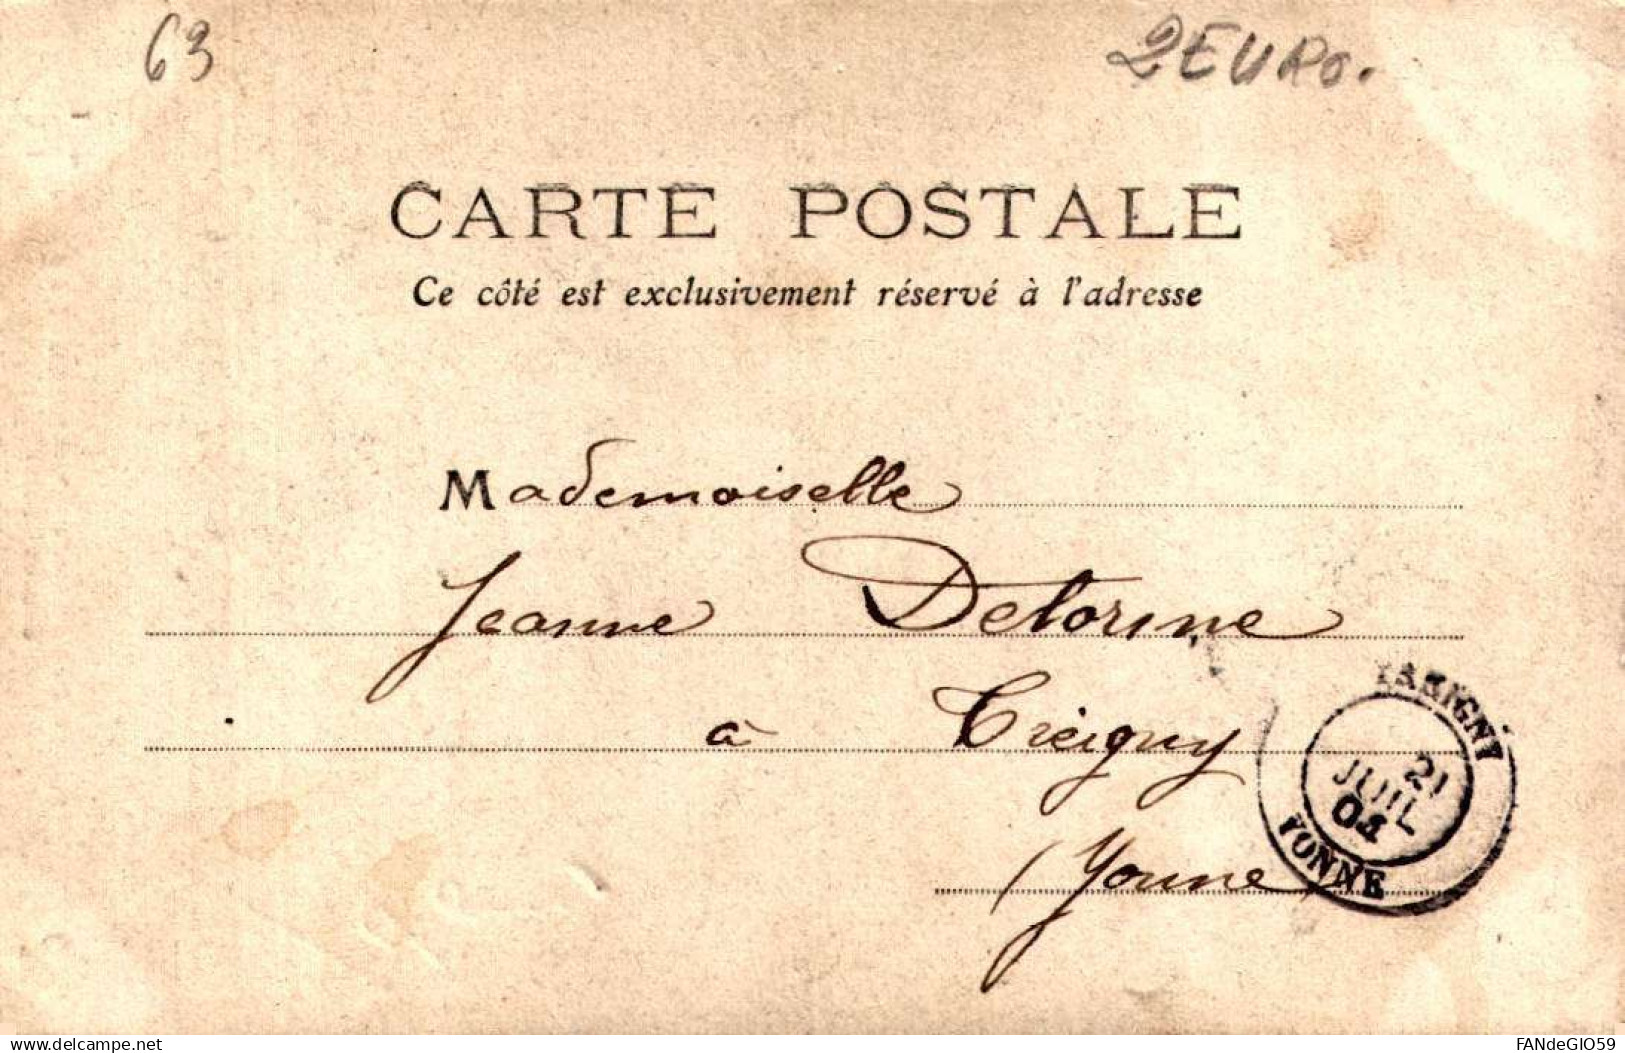 63
2 EURO.
CARTE POSTALE
Ce côté est exclusivement réservé à l'adresse
Mademoiselle
Jeanne Delorme
à Treigny
(Yonne)
21
JUIL
04
YONNE
www.delcampe.net
FANdeGIO59